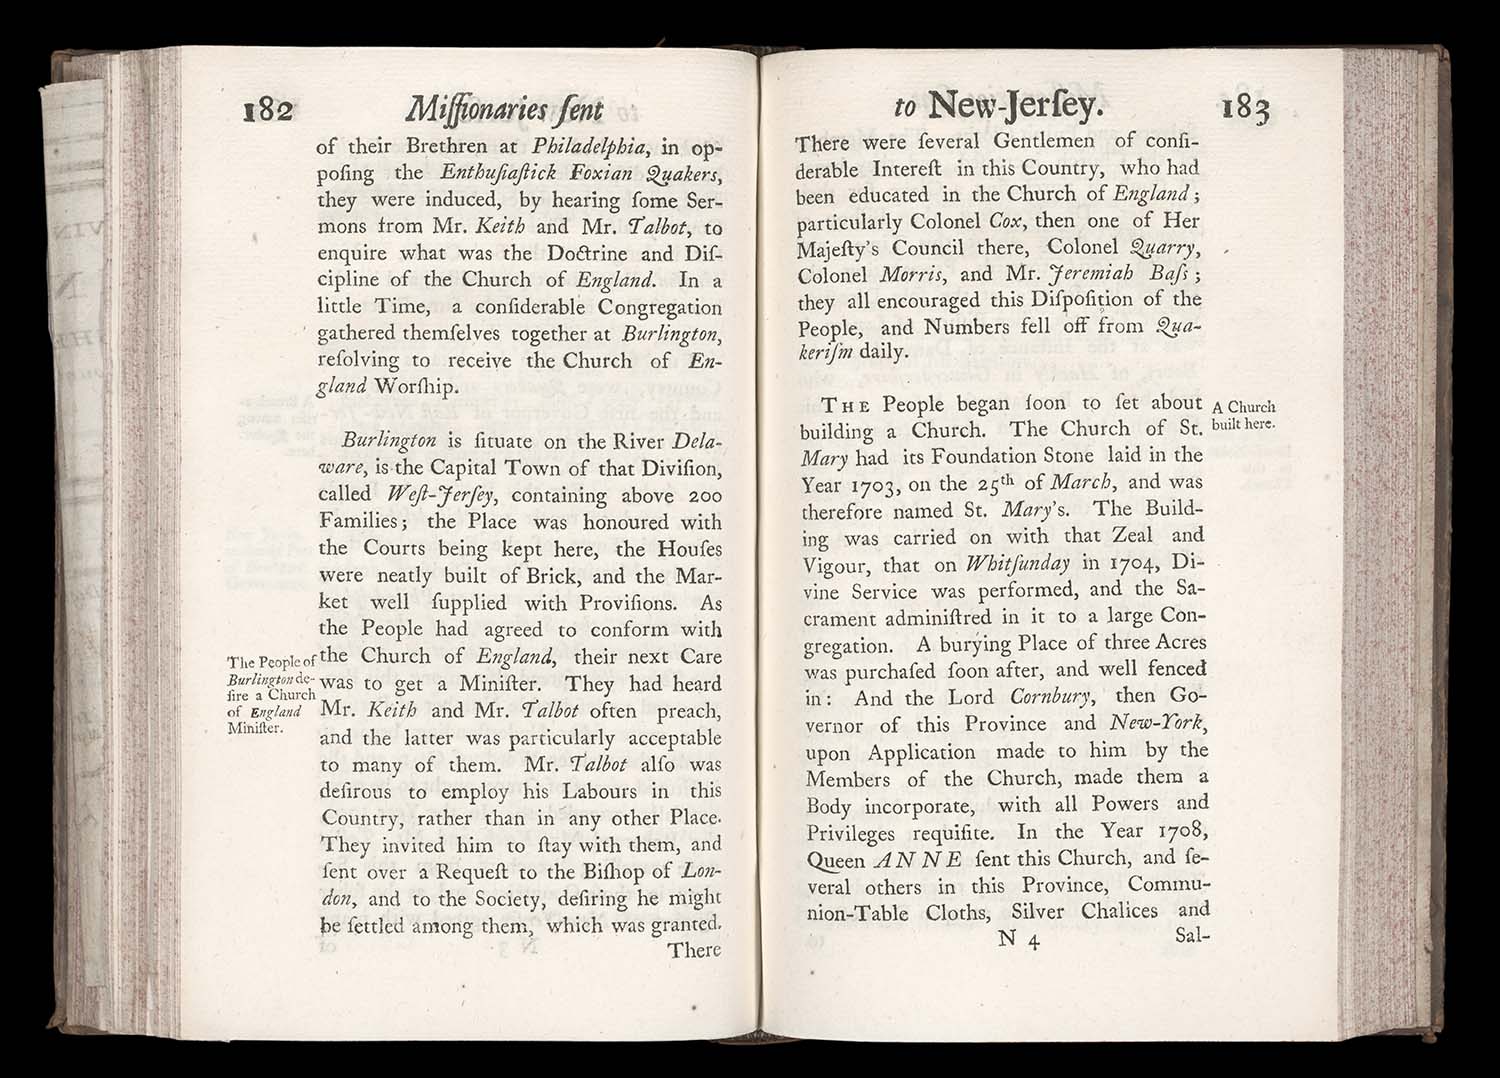 182 Miſſionaries ſent
of their Brethren at Philadelphia, in op-
poſing the Enthuſiaſtick Foxian Quakers,
they were induced, by hearing ſome Ser-
mons from Mr. Keith and Mr. Talbot, to
enquire what was the Doctrine and Diſ-
cipline of the Church of England. In a
little Time, a conſiderable Congregation
gathered themſelves together at Burlington,
reſolving to receive the Church of En-
gland Worſhip.
Burlington is ſituate on the River Dela-
ware, is the Capital Town of that Diviſion,
called Weſt-Jerſey, containing above 200
Families; the Place was honoured with
the Courts being kept here, the Houſes
were neatly built of Brick, and the Mar-
ket well ſupplied with Proviſions. As
the People had agreed to conform with
the Church of England, their next Care
was to get a Miniſter. They had heard
Mr. Keith and Mr. Talbot often preach,
and the latter was particularly acceptable
to many of them. Mr. Talbot alſo was
deſirous to employ his Labours in this
Country, rather than in any other Place.
They invited him to ſtay with them, and
ſent over a Requeſt to the Biſhop of Lon-
don, and to the Society, deſiring he might
be ſettled among them, which was granted.
There
The People of
Burlington de-
ſire a Church
of England
Miniſter.
to New-Jerſey. 183
There were ſeveral Gentlemen of conſi-
derable Intereſt in this Country, who had
been educated in the Church of England;
particularly Colonel Cox, then one of Her
Majeſty's Council there, Colonel Quarry,
Colonel Morris, and Mr. Jeremiah Baſs;
they all encouraged this Diſpoſition of the
People, and Numbers fell off from Qua-
keriſm daily.
THE People began ſoon to ſet about
building a Church. The Church of St.
Mary had its Foundation Stone laid in the
Year 1703, on the 25th of March, and was
therefore named St. Mary's. The Build-
ing was carried on with that Zeal and
Vigour, that on Whitſunday in 1704, Di-
vine Service was performed, and the Sa-
crament adminiſtred in it to a large Con-
gregation. A burying Place of three Acres
was purchaſed ſoon after, and well fenced
in: And the Lord Cornbury, then Go-
vernor of this Province and New-York,
upon Application made to him by the
Members of the Church, made them a
Body incorporate, with all Powers and
Privileges requiſite. In the Year 1708,
Queen ANNE ſent this Church, and ſe-
veral others in this Province, Commu-
nion-Table Cloths, Silver Chalices and
N 4 Sal-
A Church
built here.